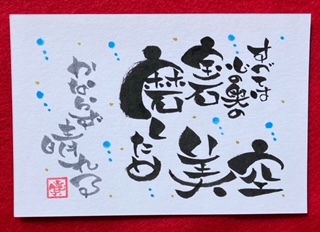 すべては
心の奥の
宝石
磨くため
空
美
かならず
晴れる